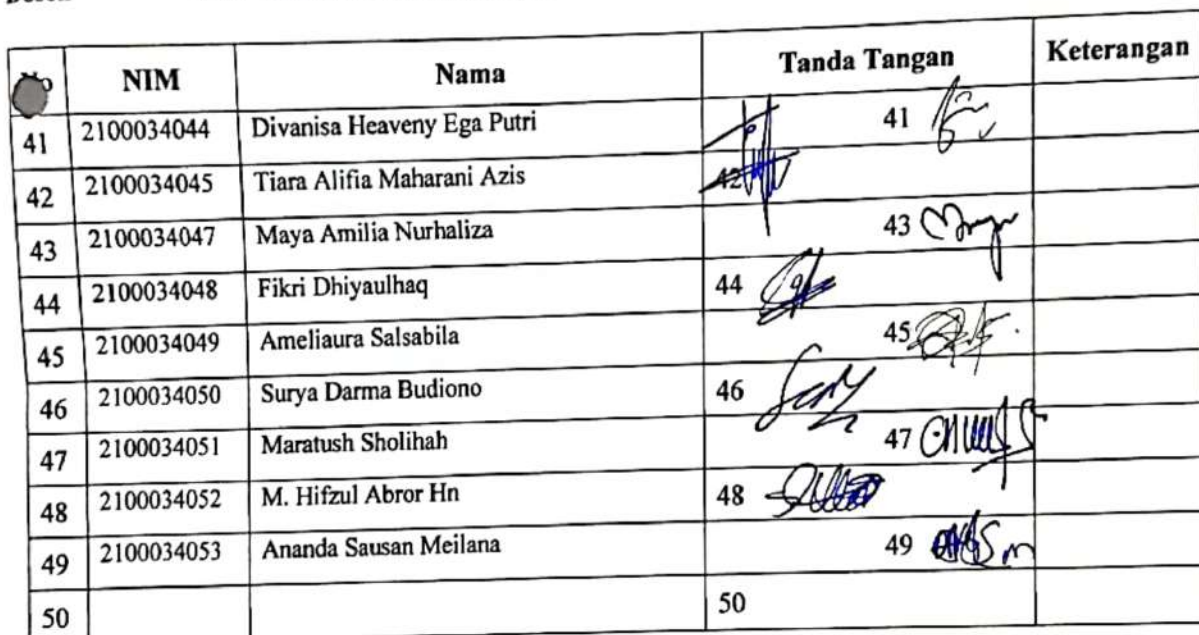 NIM Nama Tanda Tangan Keterangan
41 2100034044 Divanisa Heaveny Ega Putri 41
42 2100034045 Tiara Alifia Maharani Azis 42
43 2100034047 Maya Amilia Nurhaliza 43
44 2100034048 Fikri Dhiyaulhaq 44
45 2100034049 Ameliaura Salsabila 45
46 2100034050 Surya Darma Budiono 46
47 2100034051 Maratush Sholihah 47
48 2100034052 M. Hifzul Abror Hn 48
49 2100034053 Ananda Sausan Meilana 49
50 50